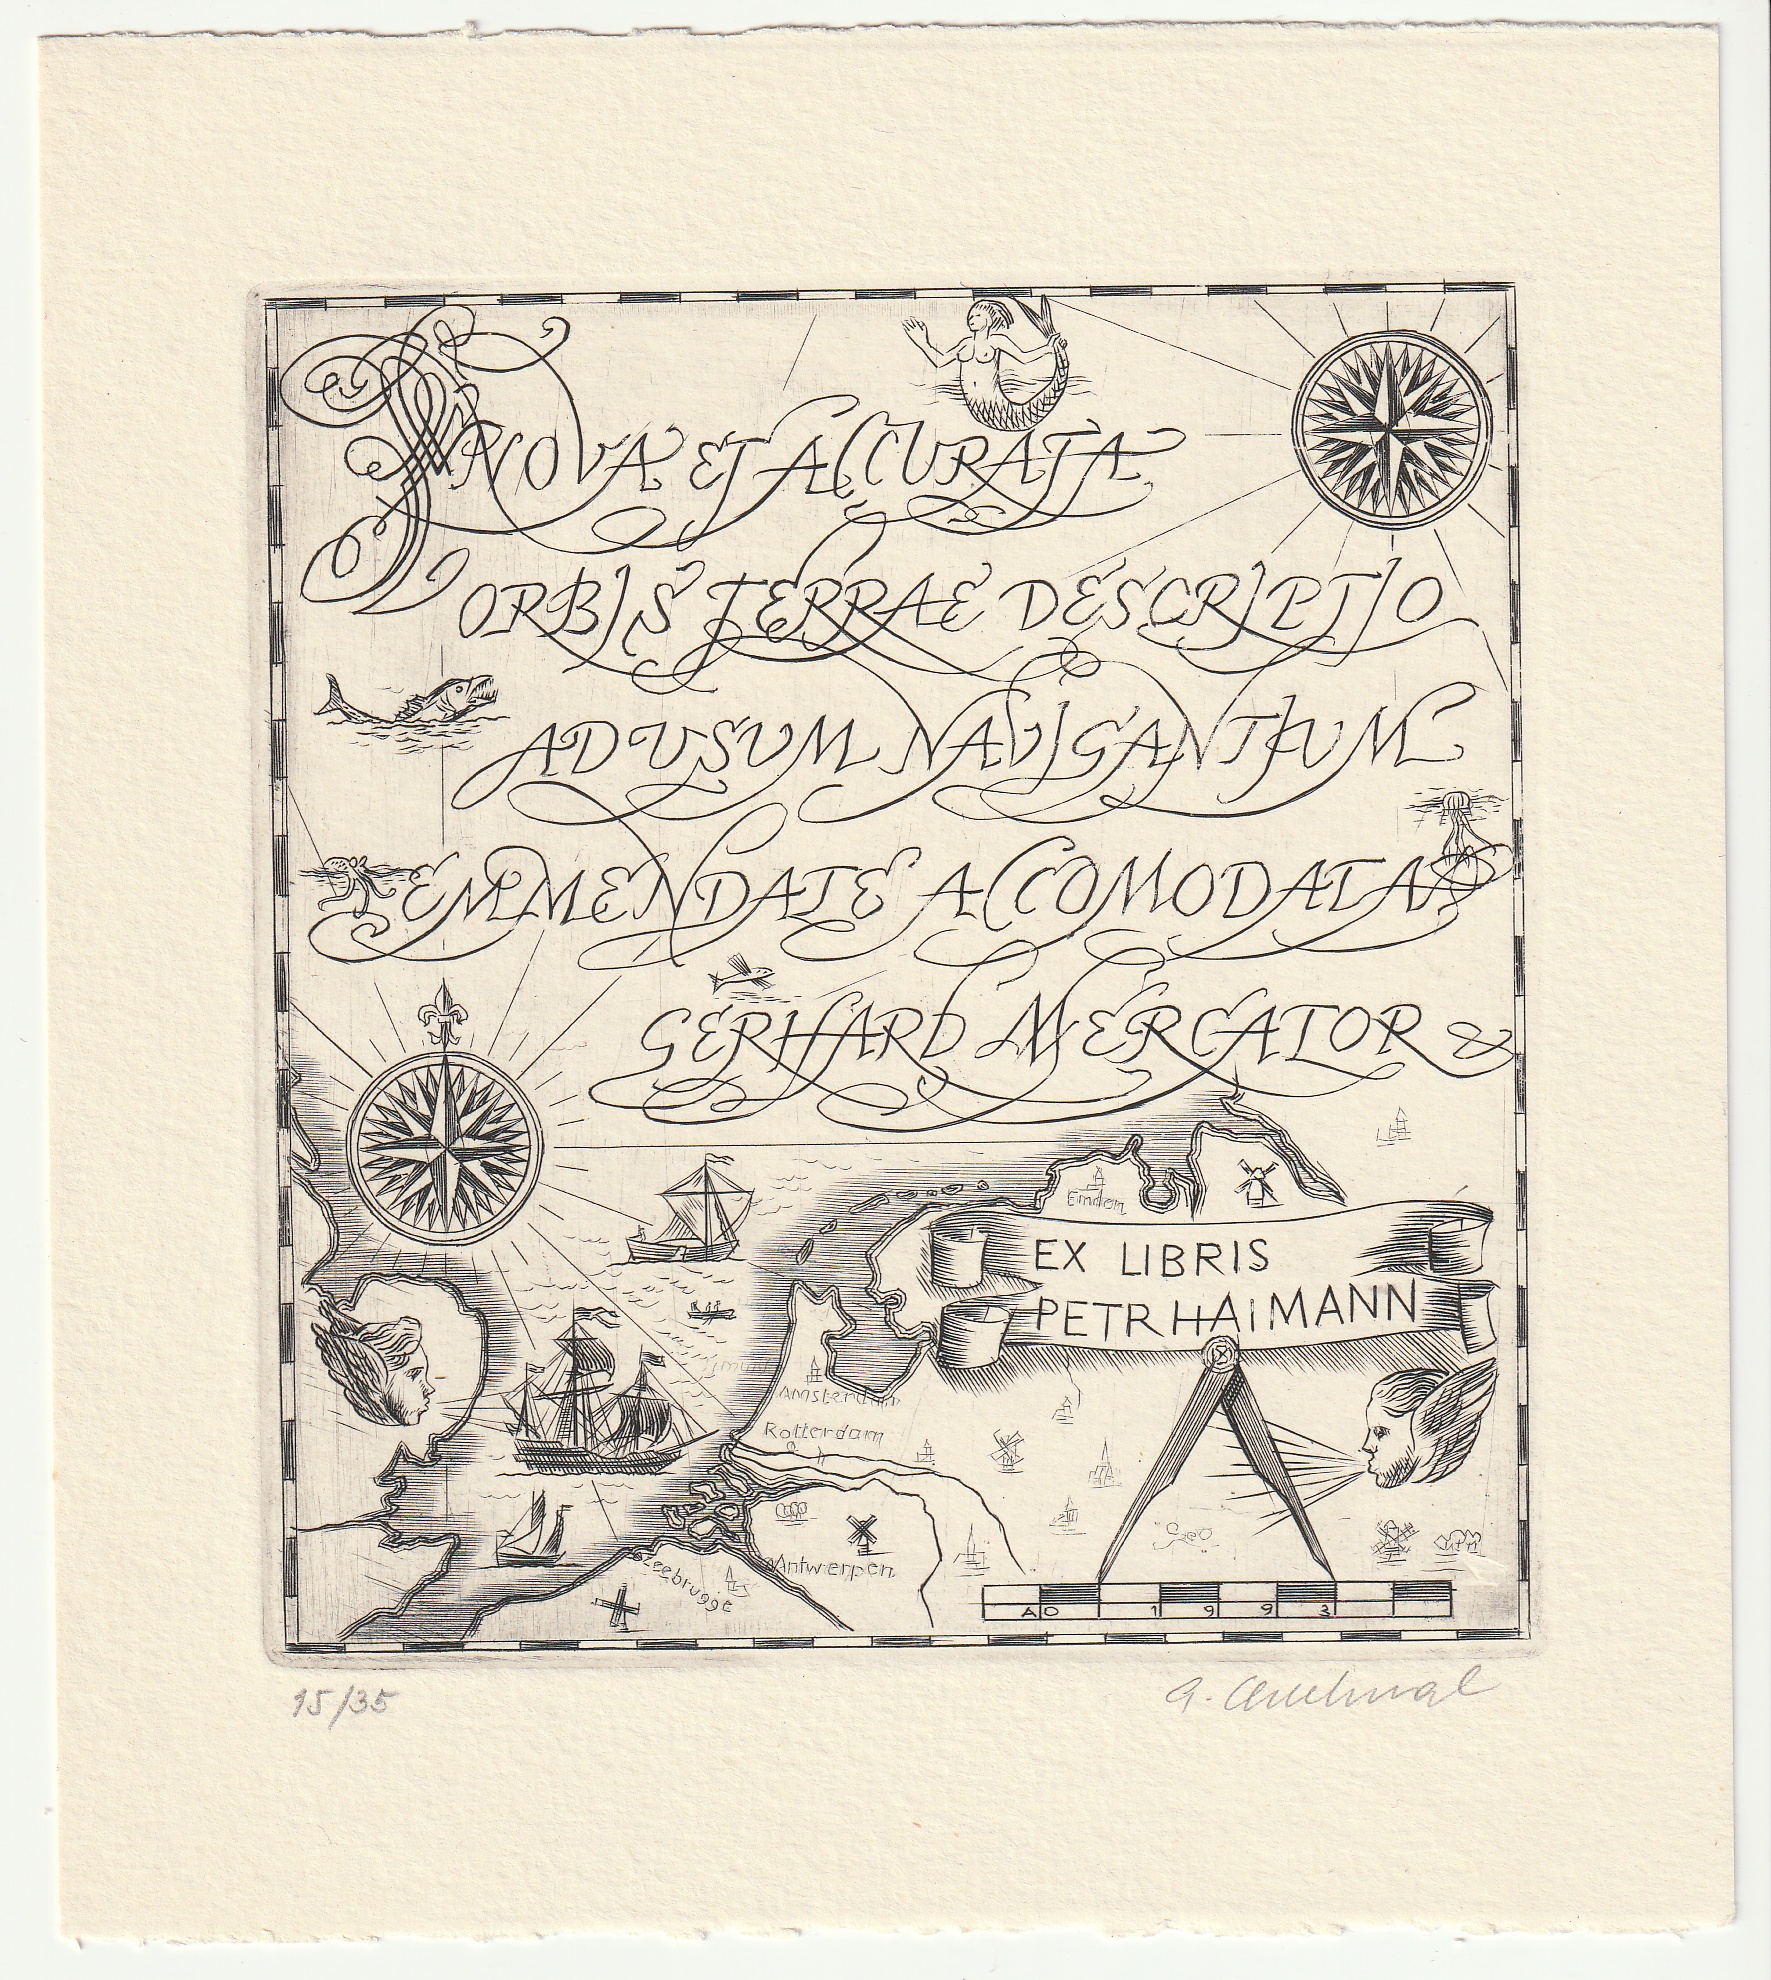 NOVA ET ACCURATA
ORBIS TERRAE DESCRIPTIO
AD USUM NAVIGANTIUM
EMMENDATE ACCOMODATA
GERHARD MERCATOR &
Emden
EX LIBRIS
PETR HAIMANN
Amsterdam
Rotterdam
Antwerpen
Zeebrugge
Geo
AO 1993
15/35